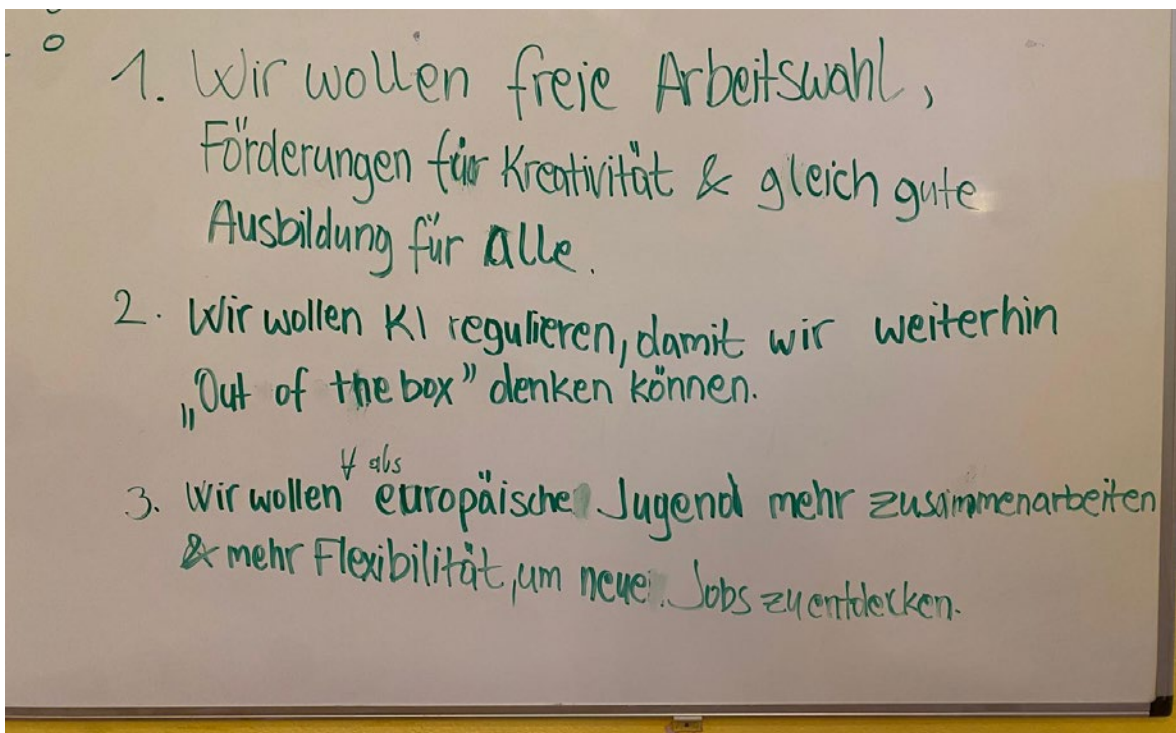 1. Wir wollen freie Arbeitswahl,
Förderungen für Kreativität & gleich gute
Ausbildung für Alle.
2. Wir wollen KI regulieren, damit wir weiterhin
„Out of the box" denken können.
als
3. Wir wollen europäische Jugend mehr zusammenarbeiten
& mehr Flexibilität, um neue Jobs zu entdecken.